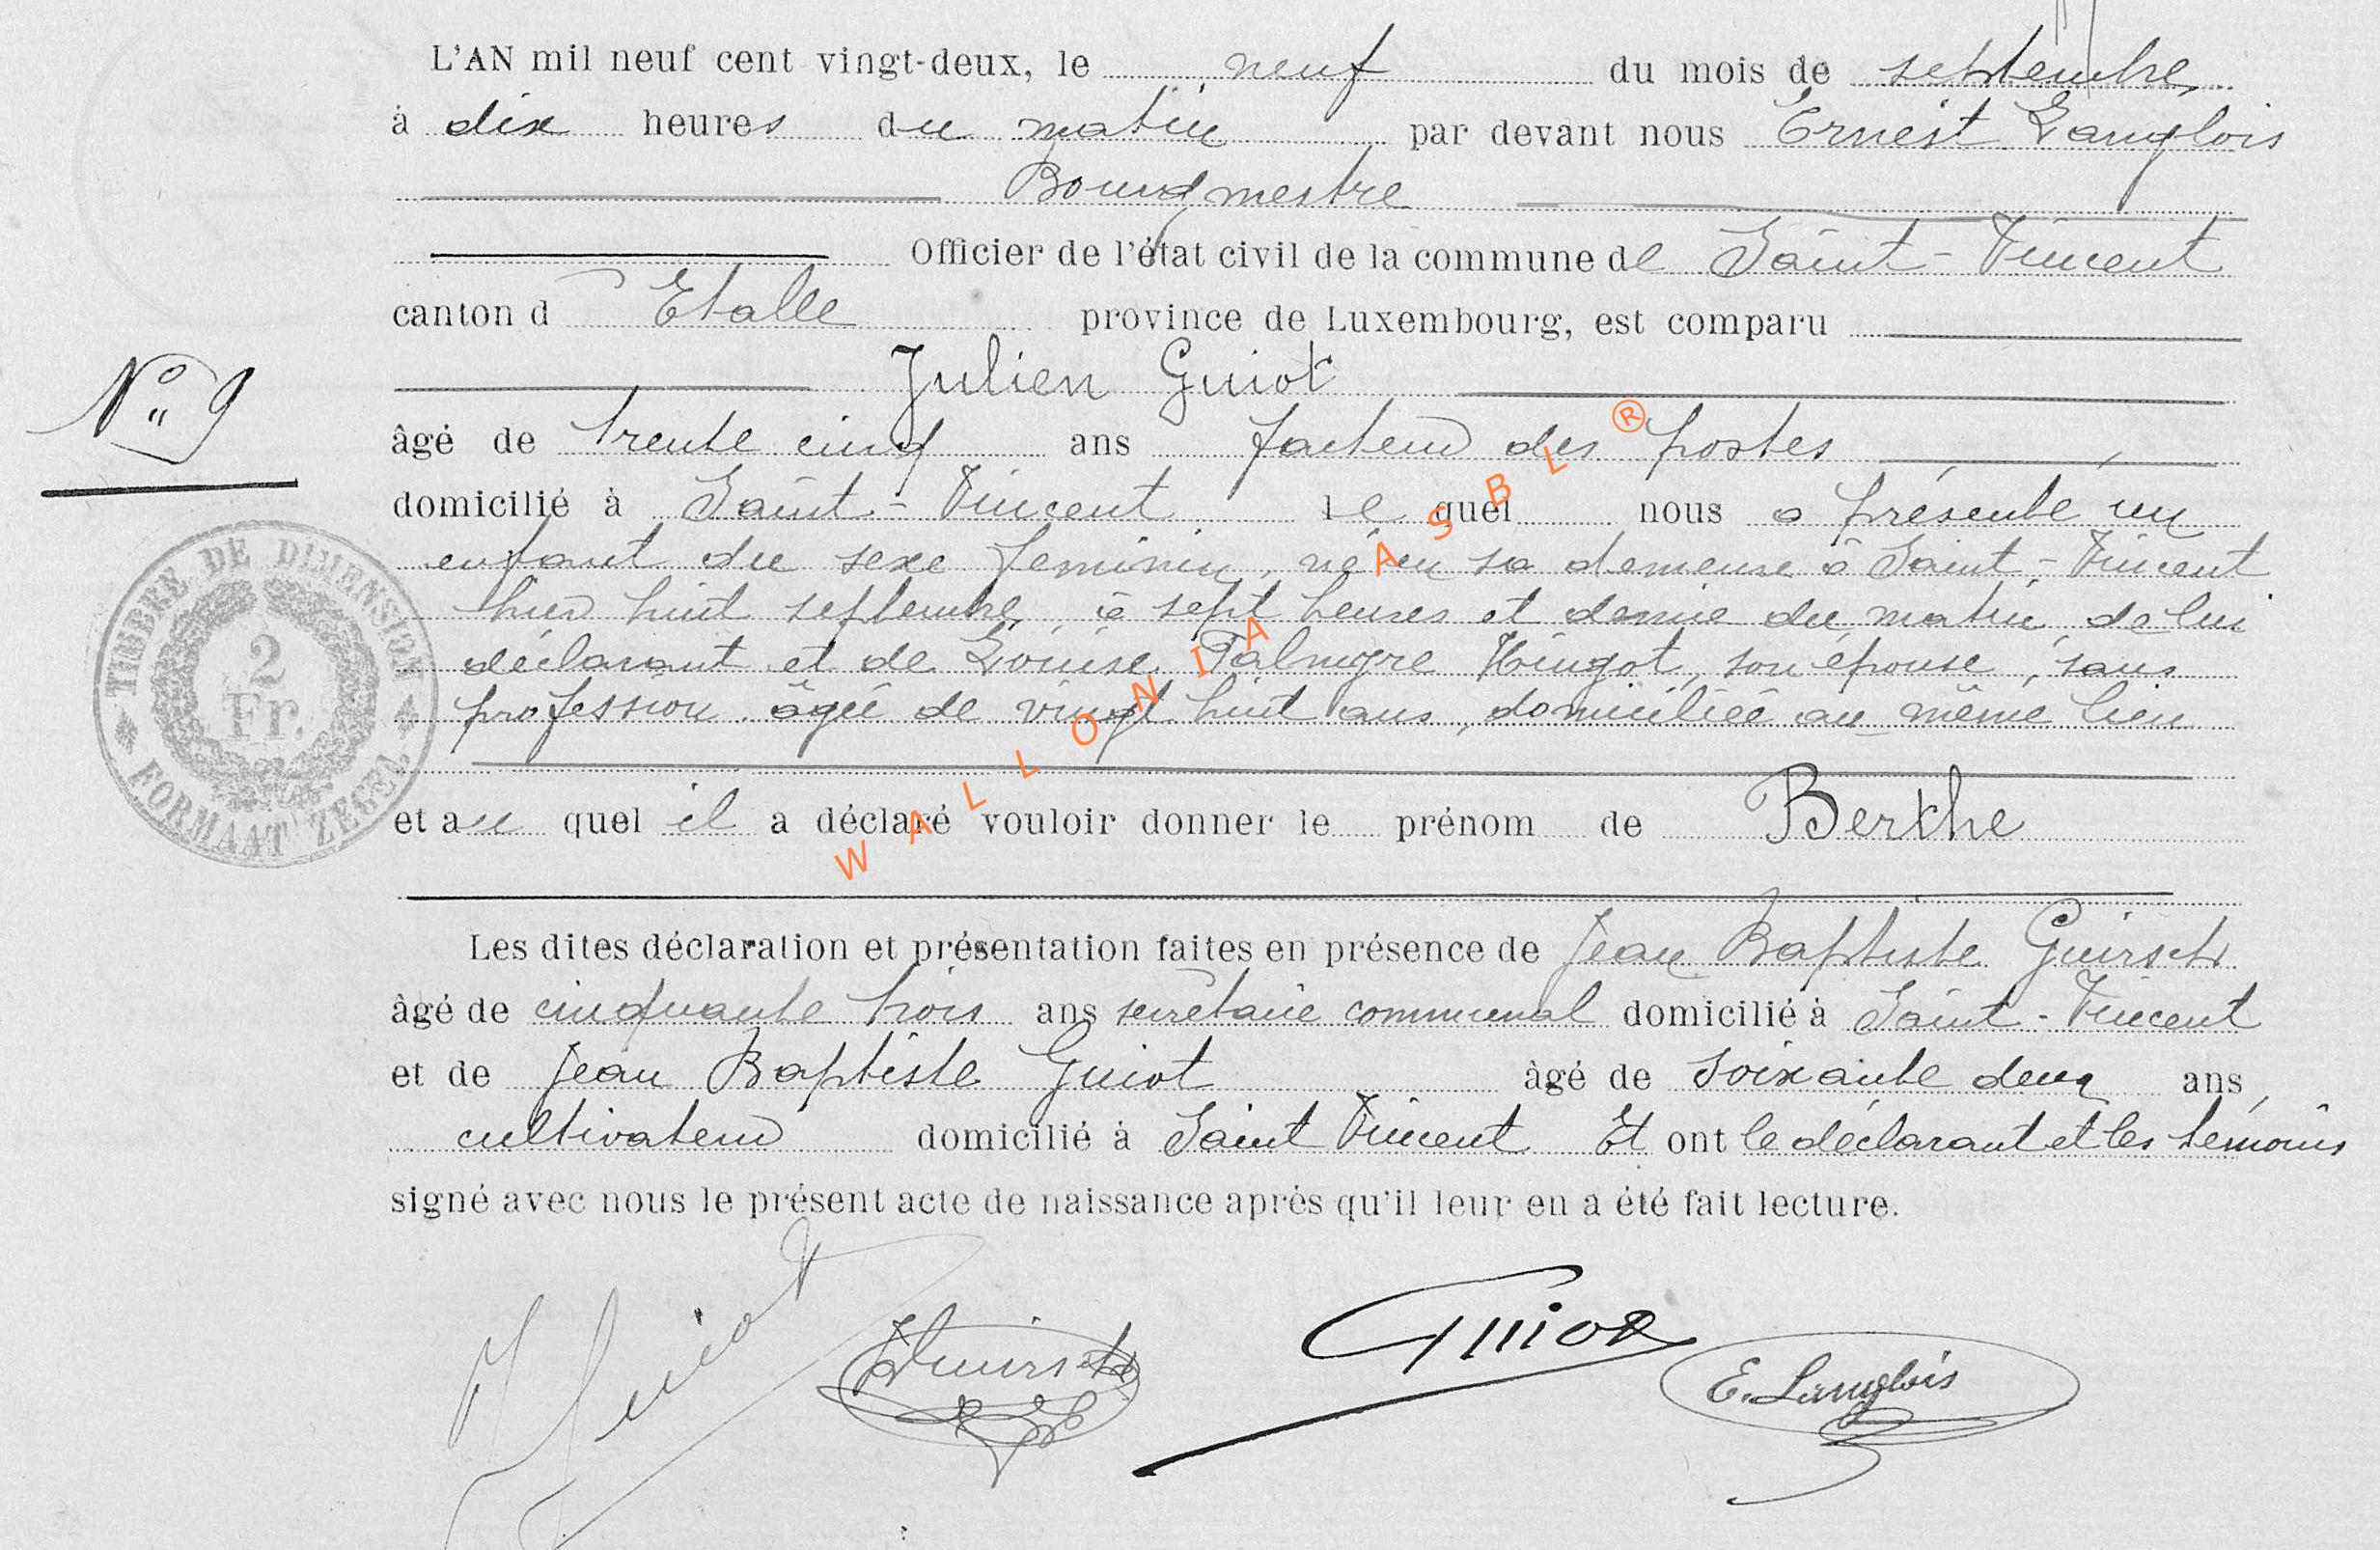 L'AN mil neuf cent vingt-deux, le neuf du mois de septembre
à dix heures du matin par devant nous Ernest Langlois
Bourgmestre
Officier de l'état civil de la commune de Saint-Vincent
canton d Etalle province de Luxembourg, est comparu
Julien Guiot
N° 9
âgé de trente cinq ans facteur des postes
domicilié à Saint-Vincent lequel nous a présenté un
enfant du sexe féminin, né en sa demeure à Saint-Vincent
hier huit septembre, à sept heures et demie du matin, de lui
déclarant et de Louise Palmyre Hingot, son épouse, sans
profession âgée de vingt huit ans, domiciliée au même lieu
et au quel il a déclaré vouloir donner le prénom de Berthe
Les dites déclaration et présentation faites en présence de Jean Baptiste Guirsch
âgé de cinquante trois ans secrétaire communal domicilié à Saint-Vincent
et de Jean Baptiste Guiot âgé de soixante deux ans,
cultivateur domicilié à Saint Vincent Et ont le déclarant et les témoins
signé avec nous le présent acte de naissance après qu'il leur en a été fait lecture.
J Guiot Guirsch Guiot E. Langlois
TIMBRE DE DIMENSION
2
Fr.
FORMAAT ZEGEL
WALLONIA ASBL ®